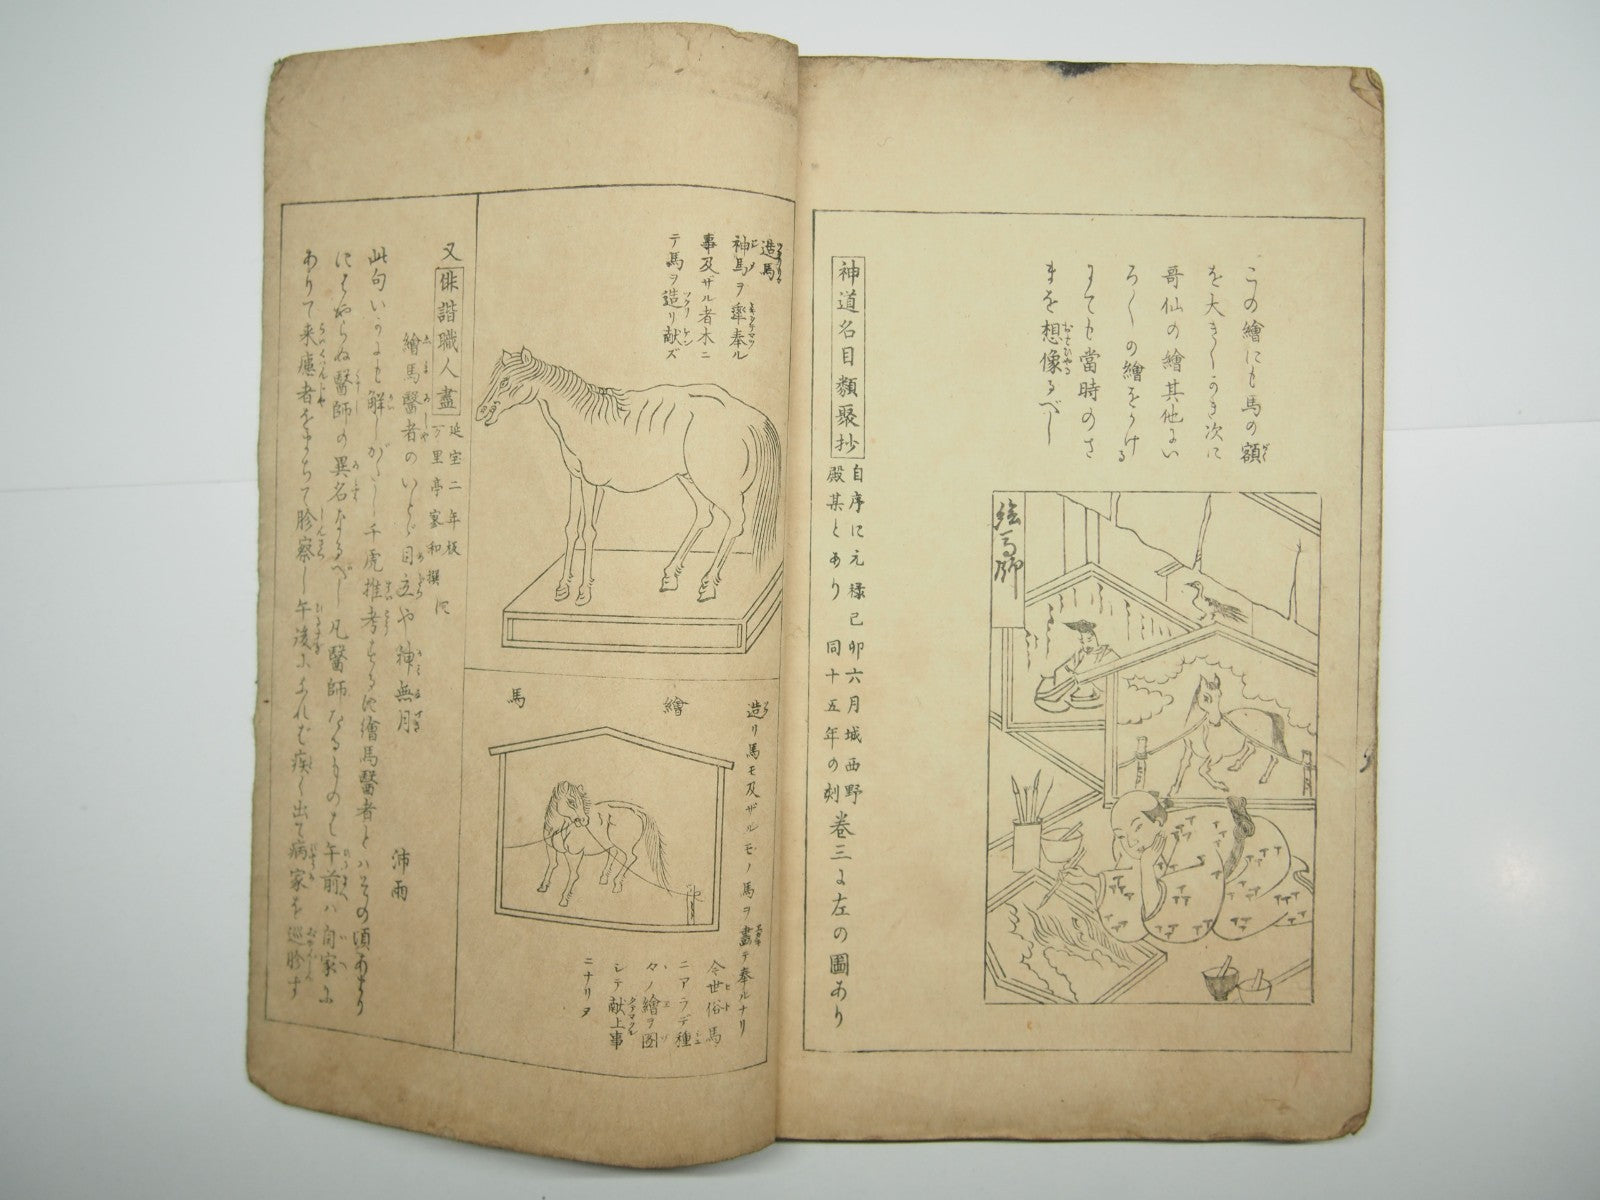 この繪にも馬の額
を大きくかき次に
哥仙の繪其他い
ろ〳〵の繪をかける
にても當時のさ
まを想像るべし
絵馬師
神道名目類聚抄
自序に元禄己卯六月城西野
殿某とあり 同十五年の刻
巻三に左の圖あり
造馬
神馬ヲ率奉ル
事及ザル者木ニ
テ馬ヲ造リ献ズ
繪
馬
造リ馬モ及ザルモノ馬ヲ畫テ奉ルナリ
今世俗馬
ニアラデ種
々ノ繪ヲ図
シテ献上事
ニナリヌ
又俳諧職人盡
延宝二年板
繪馬醫者のいとゞ目立や神無月
沛雨
此句いかにも解しがたし千虎推考するに繪馬醫者とハその頃あまり
にはやらぬ醫師の異名なるべし凡醫師なるものは午前ハ自家に
ありて来患者をまちて胗察し午後にいたれば疾く出て病家を巡胗す